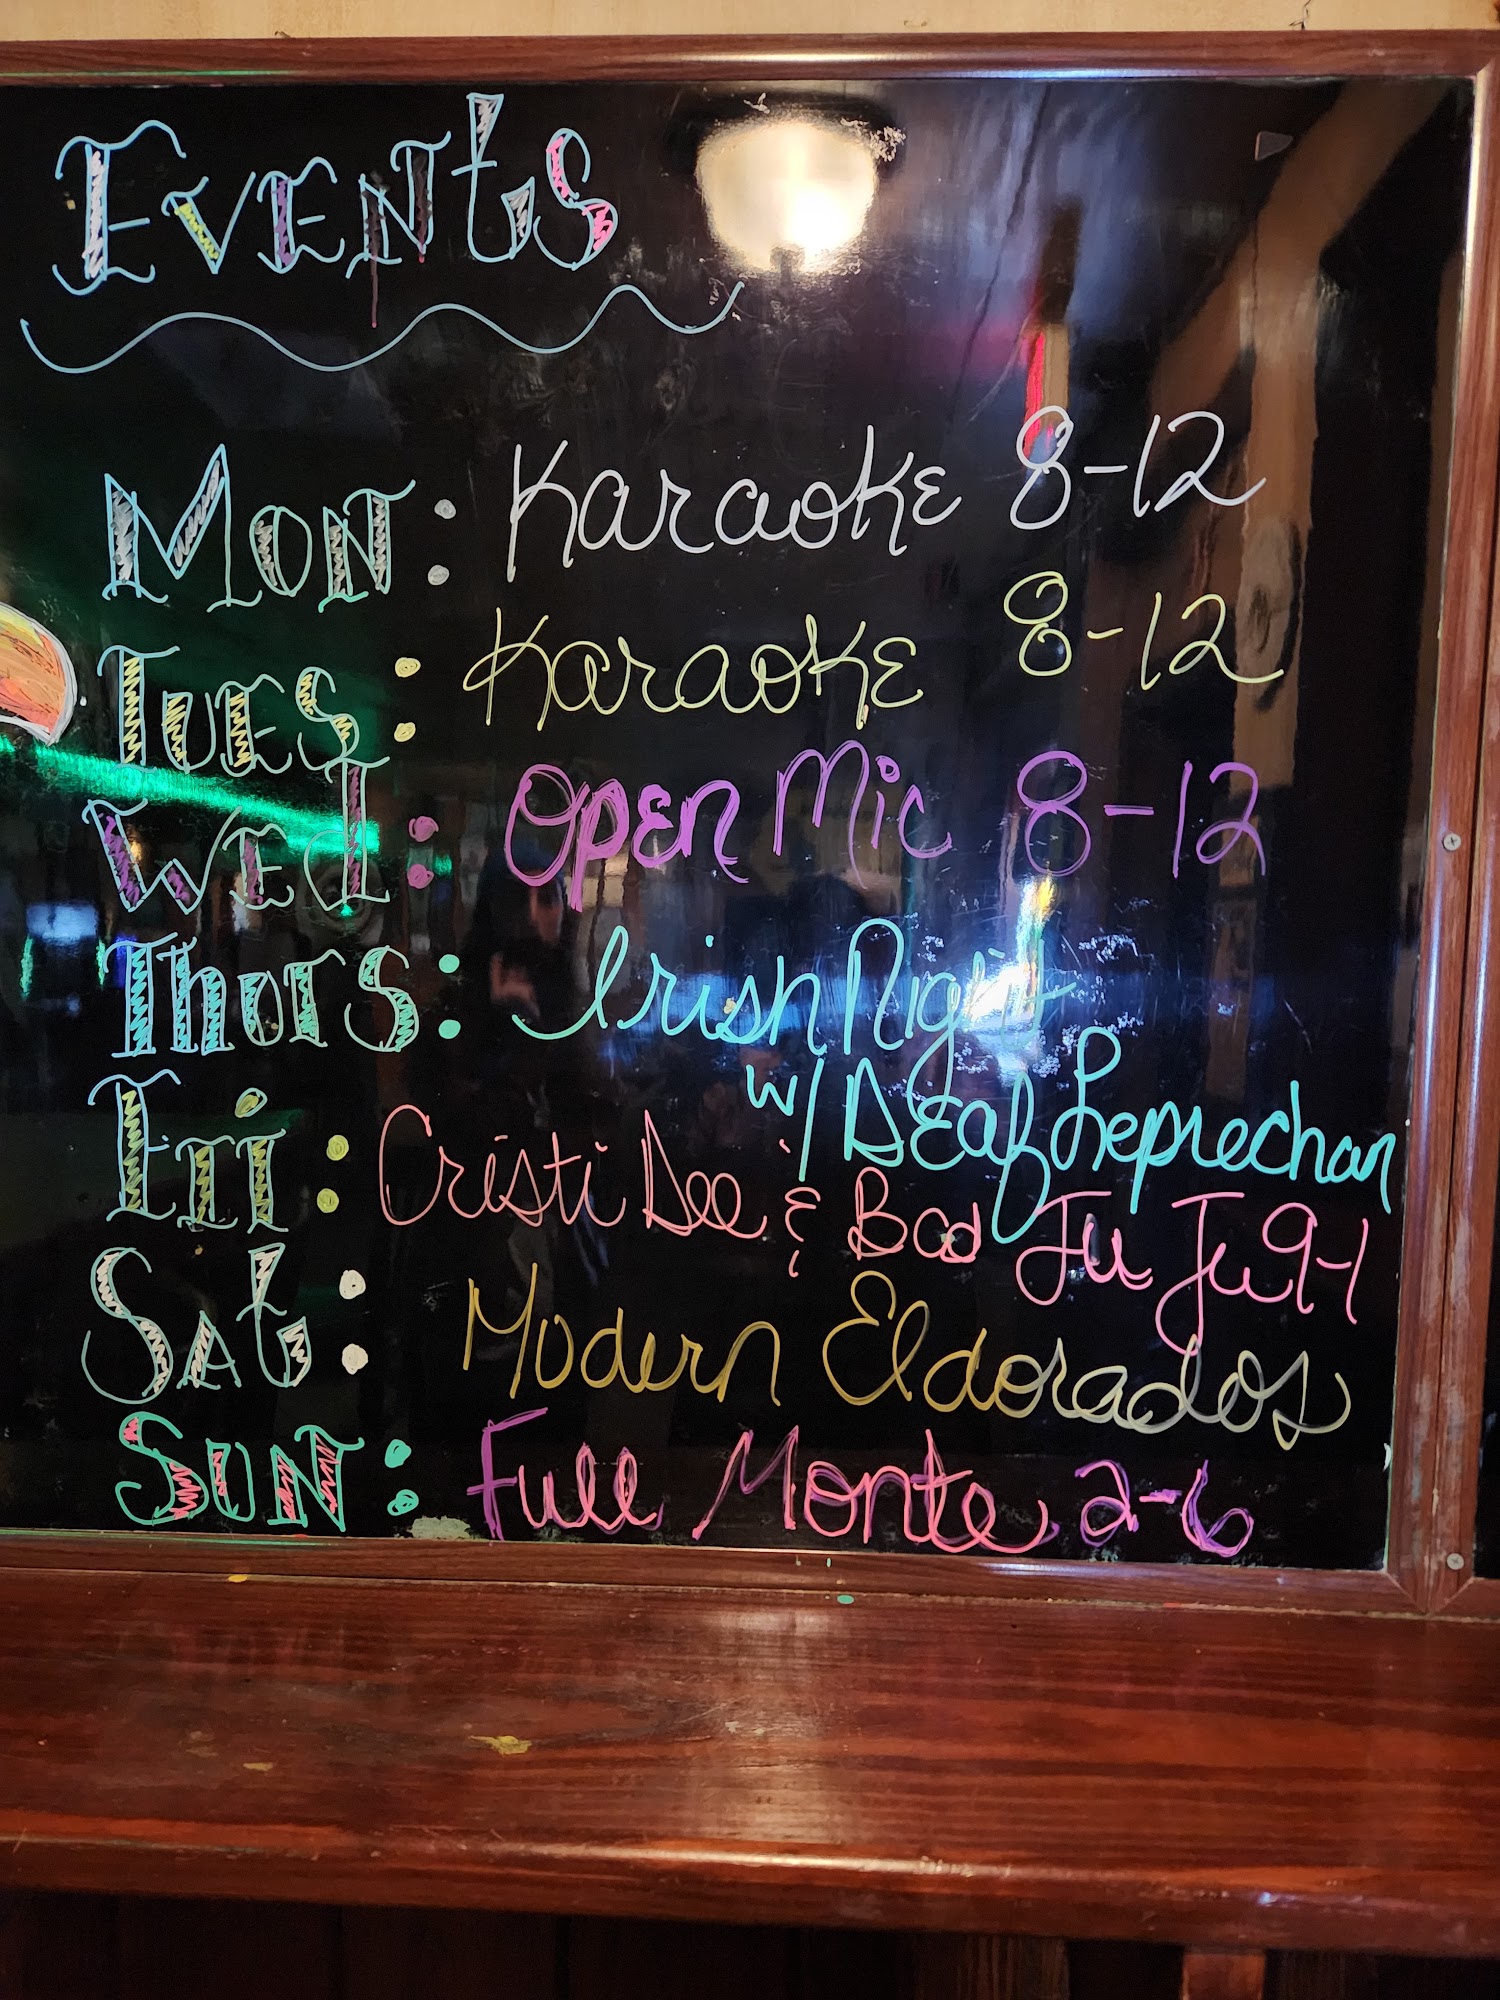 Events
Mon: Karaoke 8-12
Tues: Karaoke 8-12
Wed: Open Mic 8-12
Thurs: Irish Night
w/ Deaf Leprechan
Fri: Cristi Dee & Bad Ju Ju 9-1
Sat: Modern Eldorados
Sun: Full Monte 2-6